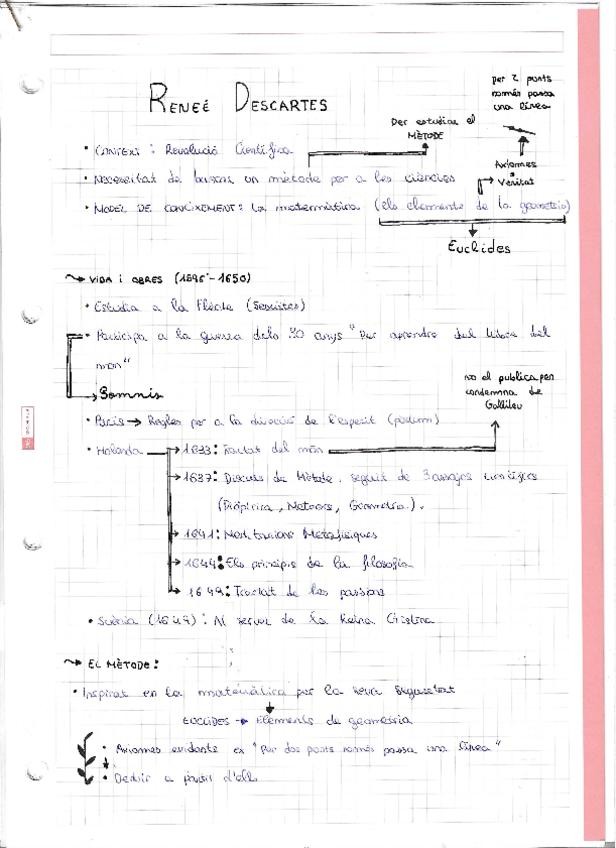 per 2 punts
només passa
una línea
RENEÉ DESCARTES
Per estudiar el
MÈTODE
• CONTEXT: Revolució Científica
Axiomes
• Necessitat de buscar un mètode per a les ciències
Veritat
• MODEL DE CONEIXEMENT: La matemàtica (els elements de la geometria)
Euclides
VIDA i OBRES (1596-1650)
• Estudia a la Flèche (Jesuites)
• Participa a la guerra dels 30 anys "Per aprendre del llibre del
món"
Somnis
no el publica per
condemna de
Galileu
• París → Regles per a la direcció de l'esperit (pòstum)
• Holanda → 1633: Tractat del món
→ 1637: Discurs del Mètode, seguit de 3 assajos científics
(Diòptrica, Meteors, Geometria).
→ 1641: Meditacions Metafísiques
→ 1644: Els principis de la filosofia
→ 1649: Tractat de les passions
• Suècia (1649): Al servei de la Reina Cristina
EL MÈTODE:
• Inspirat en la matemàtica per la seva seguretat
EUCLIDES → Elements de geometria
• Axiomes evidents ex "Per dos punts només passa una línea"
• Deduir a partir d'ells